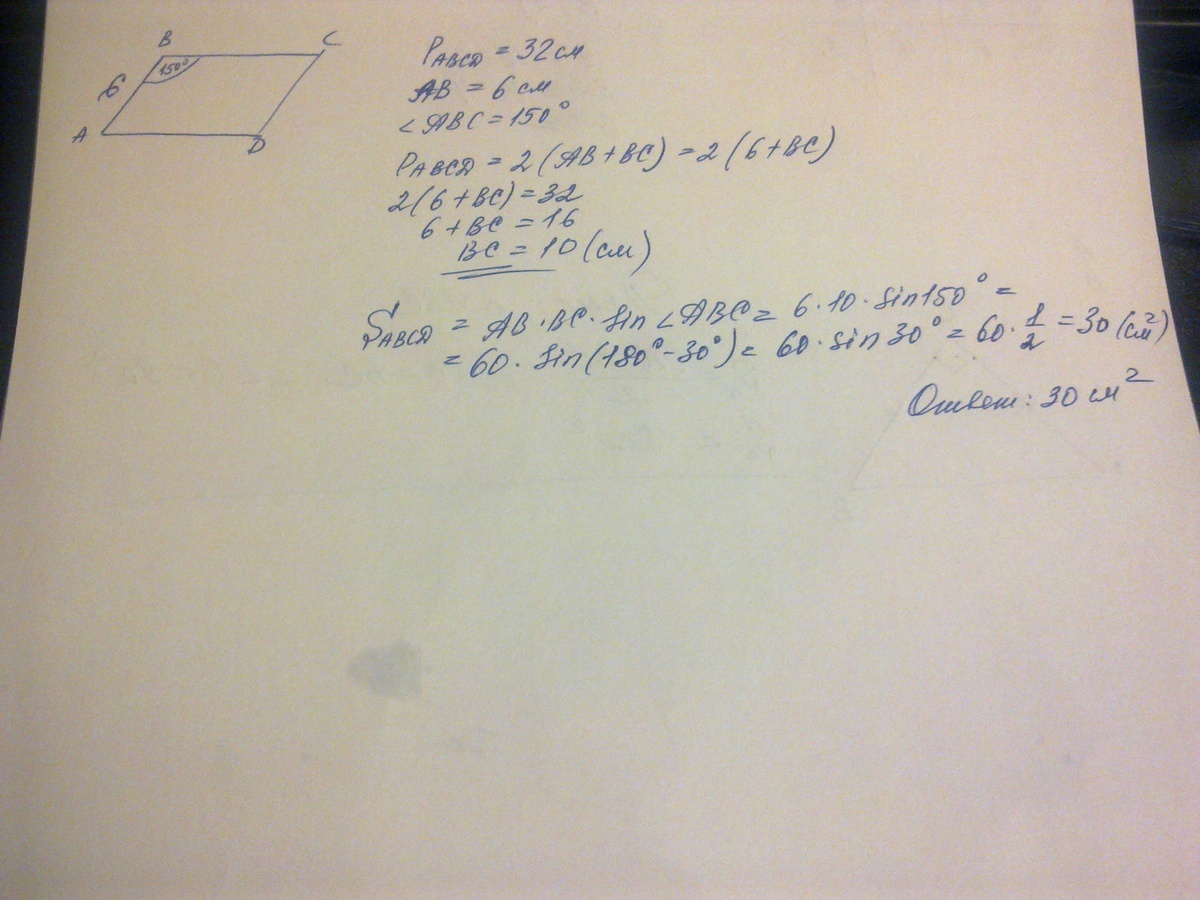 B C
150°
6
A D
P_ABCD = 32 см
AB = 6 см
∠ABC = 150°
P_ABCD = 2(AB+BC) = 2(6+BC)
2(6+BC) = 32
6+BC = 16
BC = 10 (см)
S_ABCD = AB·BC·sin∠ABC = 6·10·sin150° =
= 60·sin(180°-30°) = 60·sin30° = 60·1/2 = 30 (см²)
Ответ: 30 см²